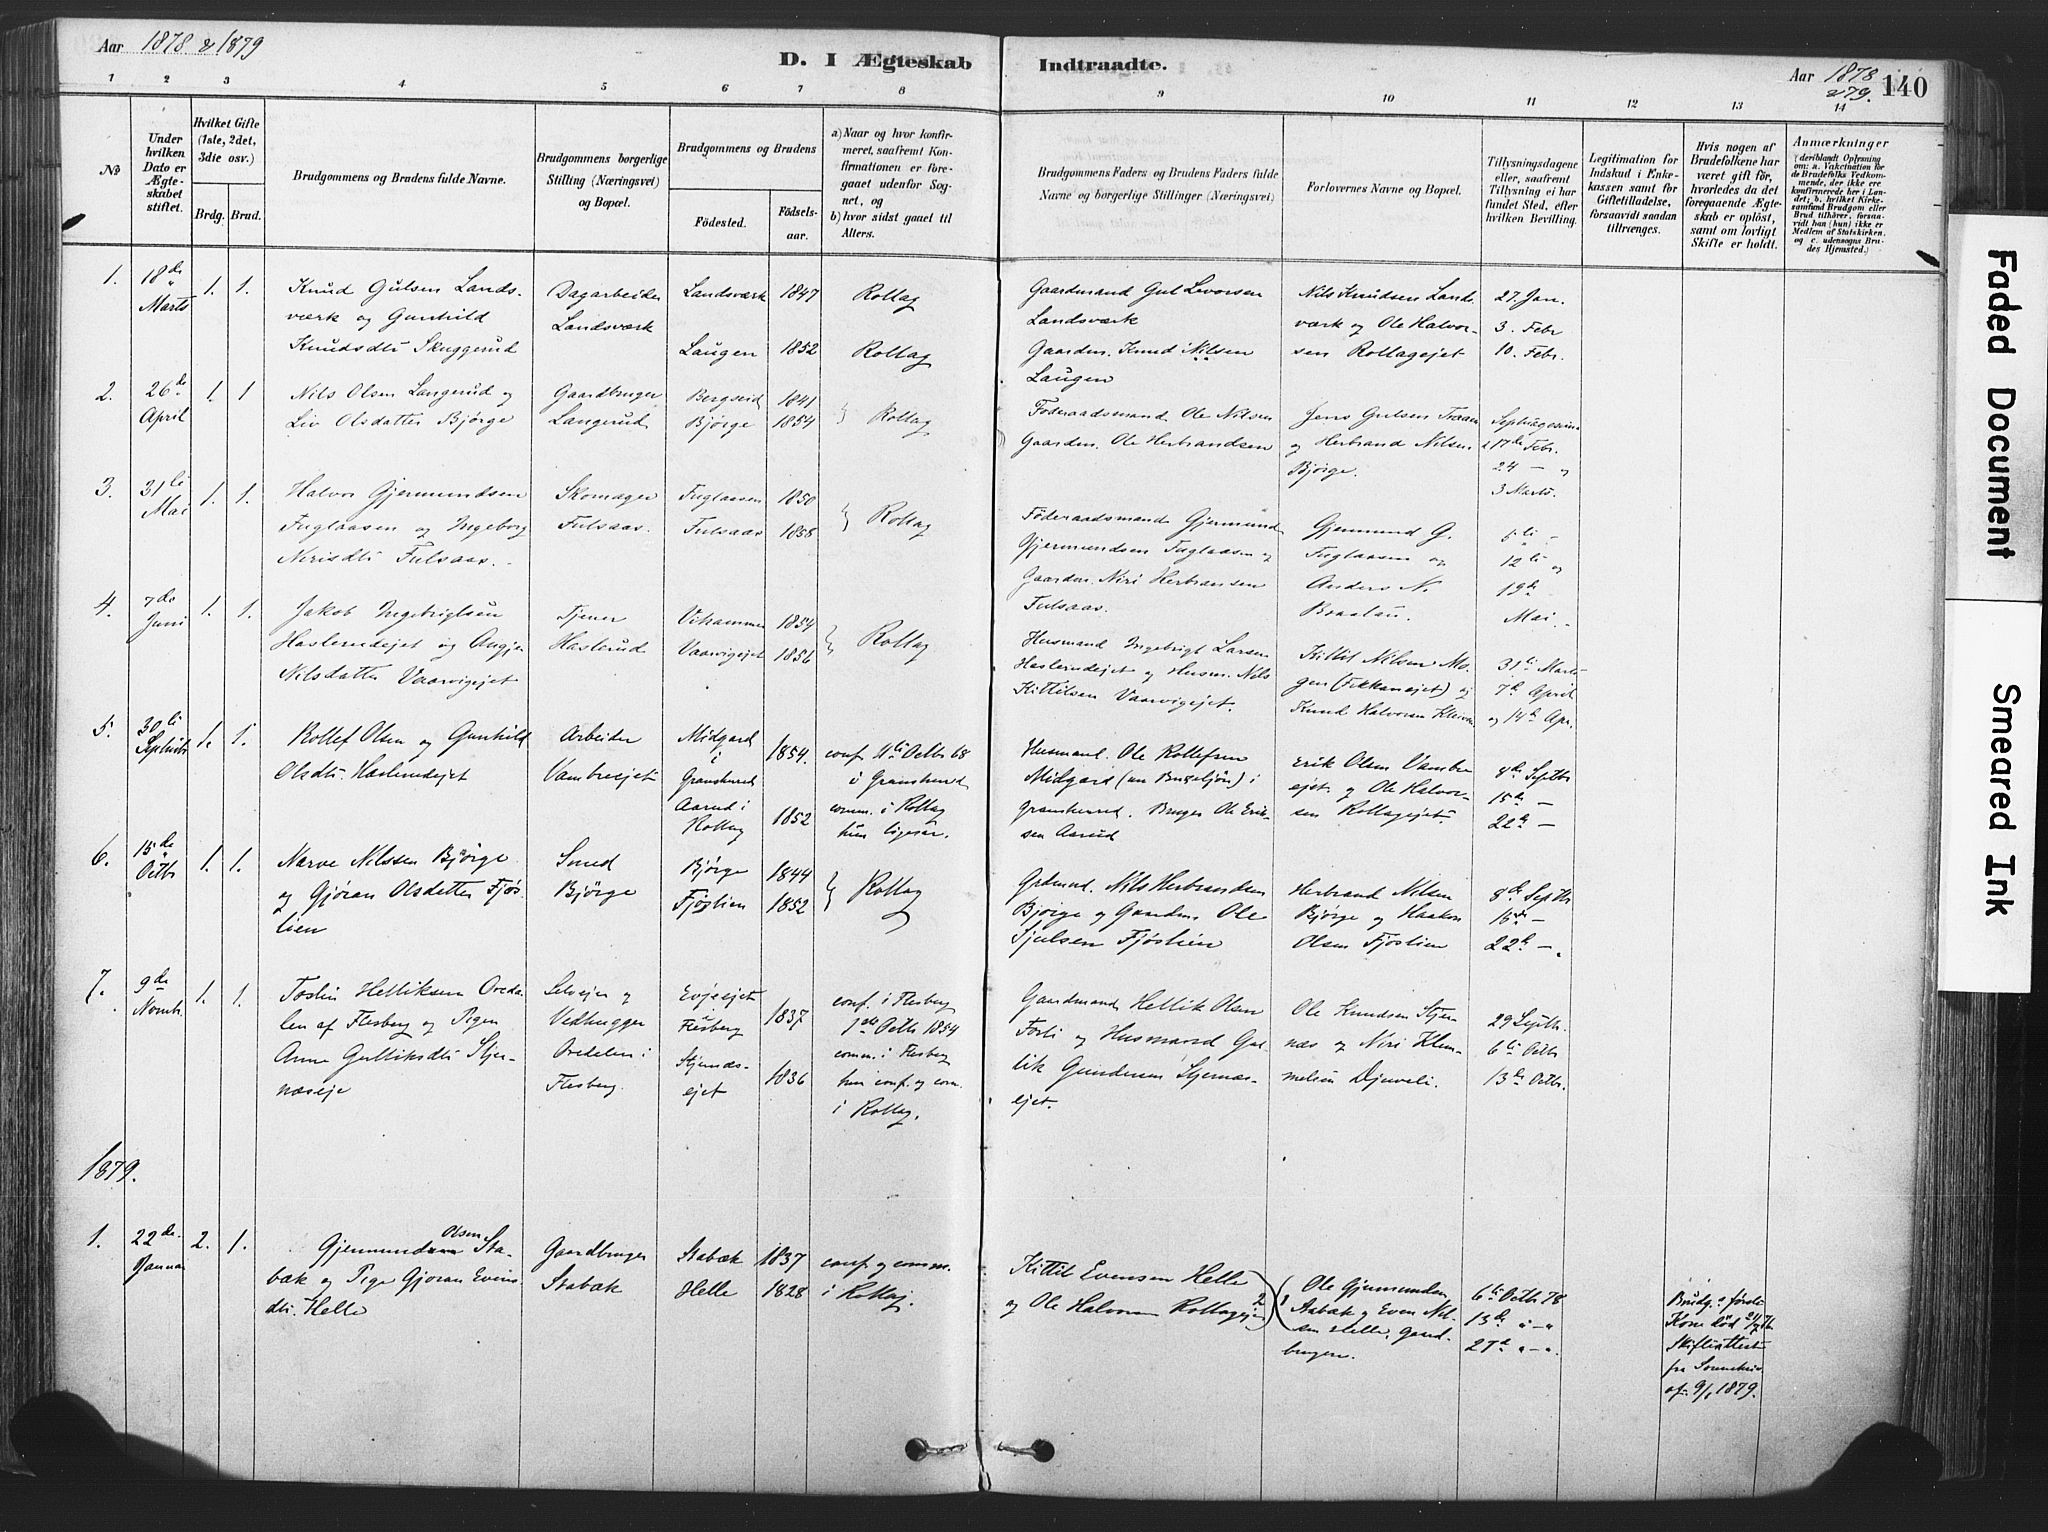 Aar 1878 & 1879
D. I Ægteskab Indtraadte.
Aar 1878 & 79. 140
1 2 3 4 5 6 7 8 9 10 11 12 13 14
№
Under hvilken Dato er Ægteskabet stiftet.
Hvilket Gifte (1ste, 2det, 3die osv.)
Brdg. Brud.
Brudgommens og Brudens fulde Navne.
Brudgommens borgerlige Stilling (Næringsvei) og Bopæl.
Brudgommens og Brudens
Fødested.
Fødselsaar.
a) Naar og hvor konfirmeret, saafremt Konfirmationen er foregaaet udenfor Sognet, og
b) hvor sidst gaaet til Alters.
Brudgommens Faders og Brudens Faders fulde Navne og borgerlige Stillinger (Næringsvei)
Forlovernes Navne og Bopæl.
Tillysningsdagene eller, saafremt Tillysning ei har fundet Sted, efter hvilken Bevilling.
Legitimation for Indskud i Enkekassen samt for Giftetilladelse, forsaavidt saadan tiltrænges.
Hvis nogen af Brudefolkene har været gift før, hvorledes da det foregaaende Ægteskab er opløst, samt om lovligt Skifte er holdt.
Anmærkninger
(deriblandt Oplysning om: a. Vakcination for de Brudefolks Vedkommende, der ikke ere konfirmerede her i Landet; b. hvilket Kirkesamfund Brudgom eller Brud tilhører, forsaavidt han (hun) ikke er Medlem af Statskirken, og c. udensogns Brudes Hjemsted.)
1. 18de Marts 1. 1.
Knud Gulsen Landsværk og Gunhild Knudsdtr Skuggerud
Dagarbeider Landsværk
Landsværk 1847 Rollag
Laugen 1852 Rollag
Gaardmand Gul Levorsen Landsværk
Gaardm. Knud Nilsen Laugen
Nils Knudsen Landsværk og Ole Halvorsen Rollagejet
27. Jan.
3. Febr
10. Febr.
2. 26de April 1. 1
Nils Olsen Langerud og
Liv Olsdatter Bjørge
Gaardbruger Langerud
Bergseid 1841
Bjørge 1854
Rollag
Føderaadsmand Ole Nilsen
Gaardm. Ole Herbrandsen
Jens Gulsen Traaen og Herbrand Nilsen Bjørge.
Septuagesima
17de Febr.
24 — og
3 Marts.
3. 31te Mai 1. 1.
Halvor Gjermundsen Fuglaasen og Ingeborg Nirisdtr Fulsaas.
Skomager Fulsaas.
Fuglaasen 1850
Fulsaas 1858
Rollag
Føderaadsmand Gjermund Gjermundsen Fuglaasen og
Gaardm. Niri Herbransen Fulsaas.
Gjermund G. Fuglaasen og Anders N. Braatau.
5te -
12te og
19de
Mai.
4. 7de Juni 1. 1.
Jakob Ingebrigtsen Haslerudejet og Nilsdatter Vaarvigejet
Tjener Haslerud
Vihammer 1854
Vaarvigejet 1856
Rollag
Husmand Ingebrigt Larsen Haslerudejet og Husm. Nils Kittilsen Vaarvigejet.
Kittil Nilsen Mogen og Knud Halvorsen
31te Marts
7de April
og 14de Apr.
5. 30te Septbr 1. 1.
Rollef Olsen og Gunhild Olsdtr. Haslerudejet
Arbeider Vambreejet
Midgard i Gransherred 1854.
Aarud i Rollag 1852
conf. 11te Octbr 68 i Gransherred
comm. i Rollag
hun ligesaa.
Husmand. Ole Rollefsen Midgard i Gransherred. Bruger Ole Eriksen Aarud
Erik Olsen Vambreejet og Ole Halvorsen Rollagejet
8de Septbr
15de —
22de —
6. 15de Octbr 1. 1.
Narve Nilssen Bjørge og Gjøran Olsdatter Fjøslien
Smed Bjørge
Bjørge 1844
Fjøslien 1852
Rollag
Grdmnd. Nils Herbrandsen Bjørge og Gaardm. Ole Sjulsen Fjøslien
Herbrand Nilsen Bjørge og Haakon Olsen Fjøslien
8de Septbr
15de —
22de —
7. 9de Novmbr. 1. 1.
Tostin Helliksen Oredalen af Flesberg og Pigen Anne Gulliksdtr Stjernæseje
Selveier og Vedhugger Oredalen i Flesberg.
Evjesejet Flesberg 1837
Stjernæsejet 1836
conf. i Flesberg 1ste Octbr 1854
comm. i Flesberg
hun conf. og com. i Rollag.
Gaardmand Hellik Olsen og Husmand Gullik Gundersen Stjernæsejet.
Ole Knudsen Stjernæs og Niri Klemmetsen Djuveli.
29 Septbr.
6te Octbr
13de Octbr.
1879.
1. 22de Januar 2. 1.
Gjermund Olsen Stabæk og Pige Gjøran Evensdtr. Helle
Gaardbruger Stabæk
Stabæk 1837
Helle 1828
conf. og comm. i Rollag.
Kittil Evensen Helle og Ole Halvorsen Rollagejet 2
1 Ole Gjermundsen Stabæk og Even Nilsen Helle, Gaardbrugere.
6te Octbr 78
13de " - "
27de " - ".
Brudg.s første Kone død
Skifteattest fra
af 9/1 1879.
Faded Document
Smeared Ink